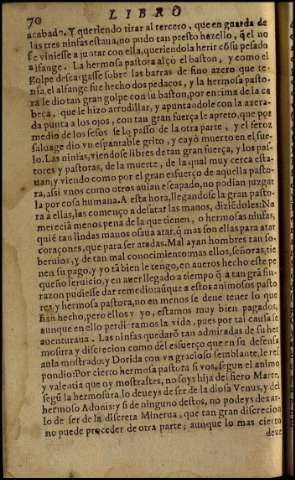 70 LIBRO
acabada. Y queriendo tirar al tercero, que en guarda de
las tres ninfas estaua, no pudo tan presto hazello, q̃ el no
se viniesse a juntar con ella, queriendola herir cõ su pesado
alfange. La hermosa pastora alçò el baston, y como el
golpe descargasse sobre las barras de fino azero que te-
nia, el alfange fue hecho dos pedaços, y la hermosa pasto-
ra le dio tan gran golpe con su baston por encima de la ca
beça, que le hizo arrodillar, y apuntandole con la azera-
da punta a los ojos, con tan gran fuerça le apreto, que por
medio de los sesos se lo passò de la otra parte, y el feroz
saluage dio vn espantable grito, y cayò muerto en el sue-
lo. Las ninfas, viendose libres de tan gran fuerça, y los pas-
tores y pastoras, de la muerte, de la qual muy cerca esta-
uan, y viendo como por el gran esfuerço de aquella pasto-
ra, assi vnos como otros auian escapado, no podian juzgar
la por cosa humana. A esta hora, llegandose la gran pasto-
ra a ellas, las començò a desatar las manos, diziẽdoles: No
merecia menos pena de la que tienen, o hermosas ninfas,
quiẽ tan lindas manos osaua atar, q̃ mas son ellas para atar
coraçones, que para ser atadas. Mal ayan hombres tan so-
beruios, y de tan mal conocimiento: mas ellos, señoras, tie
nen su pago, y yo tãbiẽ le tengo, en aueros hecho este pe
queño seruicio, y en auer llegado a tiempo q̃ a tan grã sin-
razon pudiesse dar remedio: aunque a estos animosos pasto
res, y hermosa pastora, no en menos se deue tener lo que
han hecho, pero ellos y yo, estamos muy bien pagados,
aunque en ello perdieramos la vida, pues por tal causa se
auenturaua. Las ninfas quedarõ tan admiradas de su her
mosura y discrecion como del esfuerço que en su defensa
auia mostrado: y Dorida con vn gracioso semblante, le res
pondio: Por cierto hermosa pastora si vos, segun el animo
y valentia que oy mostrastes, no soys hija del fiero Marte,
segũ la hermosura, lo deueys de ser de la diosa Venus, y del
hermoso Adonis: y si de ninguno destos, no podeys dexar-
lo de ser de la discreta Minerua, que tan gran discrecion
no puede proceder de otra parte; aunque lo mas cierto
deue